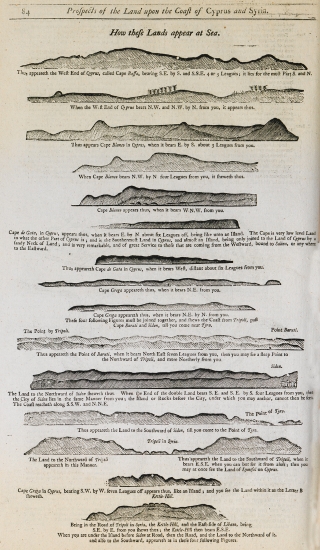 84 Prospects of the Land upon the Coast of Cyprus and Syria.
How these Lands appear at Sea.
Thus appeareth the West End of Cyprus, called Cape Baffa, bearing S.E. by S. and S.S.E. 4 or 5 Leagues; it lies for the most Part S. and N.
When the West End of Cyprus bears N.W. and N.W. by N. from you, it appears thus.
Thus appears Cape Blanco in Cyprus, when it bears E. by S. about 3 Leagues from you.
When Cape Blanco bears N.W. by N. four Leagues from you, it sheweth thus.
Cape Blanco appears thus, when it bears W.N.W. from you.
Cape de Gato, in Cyprus, appears thus, when it bears E. by N. about six Leagues off, being like unto an Island. The Cape is very low level Land
to the Eastward.
Thus appeareth Cape de Gato in Cyprus, when it bears West, distant about six Leagues from you.
Cape Grego appears thus, when it bears N.E. from you.
Cape Grego appears thus, when it bears N.E. by N. from you.
These four following Figures must be joined together, and shews the Coast from Tripoli, past
Cape Baruti and Sidon, till you come near Tyre.
The Point by Tripoli. Point Baruti.
Thus appeareth the Point of Baruti, when it bears North East seven Leagues from you, then you may see a steep Point to
the Northward of Tripoli, and more Northerly from you.
Sidon.
The Land to the Northward of Sidon sheweth thus. When the End of the double Land bears S.E. and S.E. by S. four Leagues from you, then
the City of Sidon lies in the same Manner from you; the Island or Rocks before the City, under which you may anchor, cannot then be seen.
The Coast reacheth along S.S.W. and N.N.E.
The Point of Tyre.
Thus appeareth the Land to the Southward of Sidon, till you come to the Point of Tyre.
Tripoli in Syria.
The Land to the Northward of Tripoli
appeareth in this Manner.
Thus appeareth the Land to the Southward of Tripoli, when it
bears E.S.E. when you can but see it from aloft; then you
may at once see the Land of
Cape Grego in Cyprus, bearing S.W. by W. seven Leagues off appears thus, like an Island; and you see the Land within it as the Letter B
sheweth.
Kettle-Hill.
Being in the Road of Tripoli in Syria, the Kettle-Hill, and the East-Side of Lisson, being
S.E. by E. from you shews thus; the Castle-Hill then bears E.S.E.
When you are under the Island before Sidon at Road, then the Road, and the Land to the Northward of it,
and also to the Southward, appeareth as in these five following Figures.